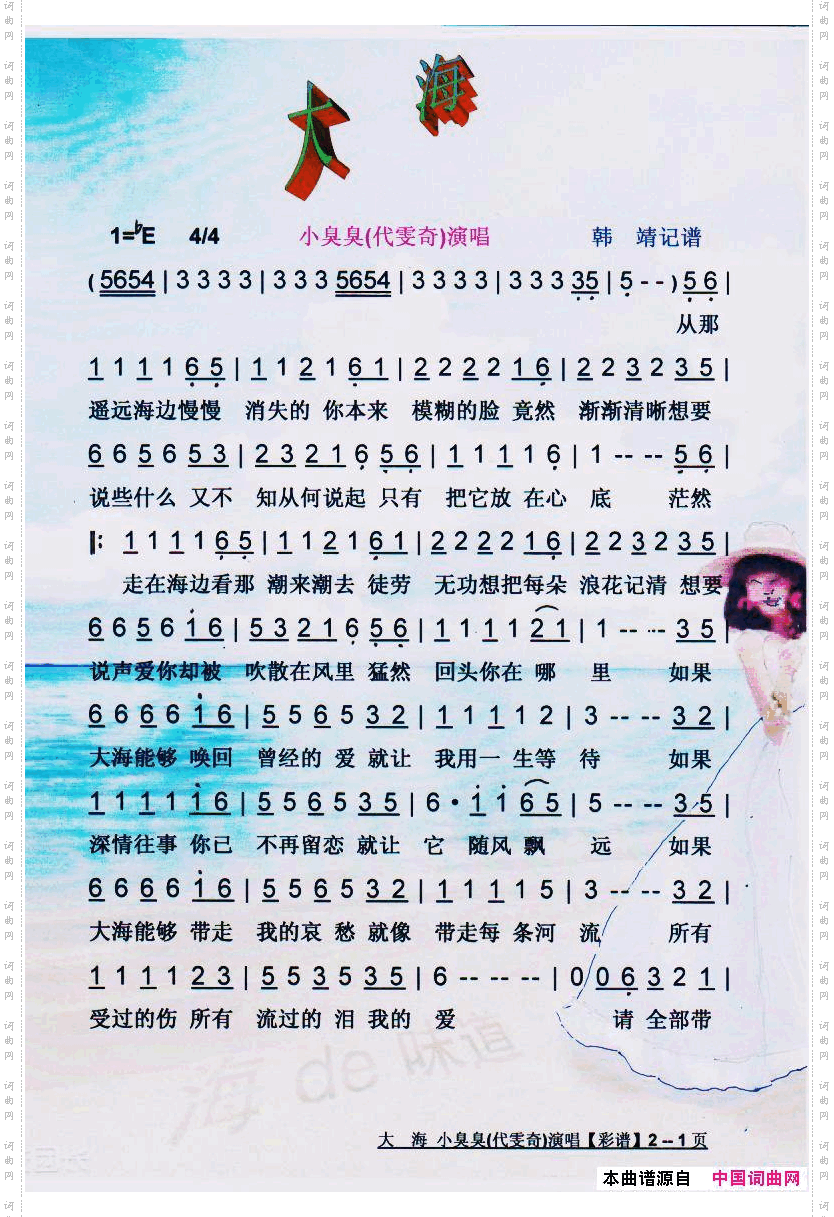 大 海
1=♭E 4/4 小臭臭(代雯奇)演唱 韩 靖记谱
( 5654 | 3 3 3 3 | 3 3 3 5654 | 3 3 3 3 | 3 3 3 35 | 5 - - ) 5 6 |
从那
1 1 1 1 6 5 | 1 1 2 1 6 1 | 2 2 2 2 1 6 | 2 2 3 2 3 5 |
遥远海边慢慢 消失的 你本来 模糊的脸 竟然 渐渐清晰想要
6 6 5 6 5 3 | 2 3 2 1 6 5 6 | 1 1 1 1 6 | 1 -- -- 5 6 |
说些什么 又不 知从何说起 只有 把它放 在心 底 茫然
‖: 1 1 1 1 6 5 | 1 1 2 1 6 1 | 2 2 2 2 1 6 | 2 2 3 2 3 5 |
走在海边看那 潮来潮去 徒劳 无功想把每朵 浪花记清 想要
6 6 5 6 1 6 | 5 3 2 1 6 5 6 | 1 1 1 1 2 1 | 1 -- -- 3 5 |
说声爱你却被 吹散在风里 猛然 回头你在 哪 里 如果
6 6 6 6 1 6 | 5 5 6 5 3 2 | 1 1 1 1 2 | 3 -- -- 3 2 |
大海能够 唤回 曾经的 爱 就让 我用一 生等 待 如果
1 1 1 1 1 6 | 5 5 6 5 3 5 | 6 • 1 1 6 5 | 5 -- -- 3 5 |
深情往事 你已 不再留恋 就让 它 随风 飘 远 如果
6 6 6 6 1 6 | 5 5 6 5 3 2 | 1 1 1 1 5 | 3 -- -- 3 2 |
大海能够 带走 我的哀 愁 就像 带走每 条河 流 所有
1 1 1 1 2 3 | 5 5 3 5 3 5 | 6 -- -- -- | 0 0 6 3 2 1 |
受过的伤 所有 流过的 泪 我的 爱 请 全部带
海 de 味道
大 海 小臭臭(代雯奇)演唱【彩谱】2 -- 1 页
本曲谱源自 中国词曲网